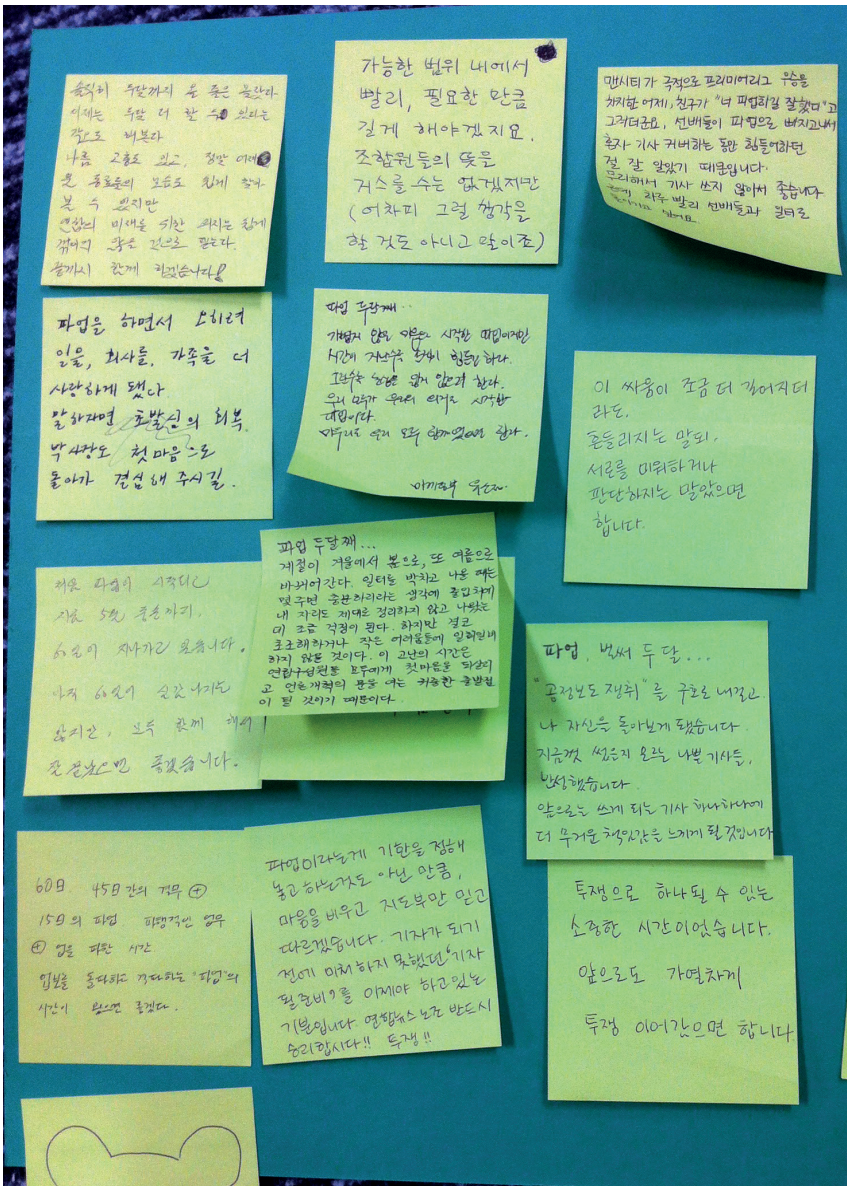 솔직히 두달까지 올 줄은 몰랐다
이제는 두달 더 할 수 있다는
각오로 해본다
나름 고충도 있고, 정말 어제
본 동료들의 모습도 쉽게 찾아
볼 수 없지만
연합의 미래를 위한 의지는 쉽게
꺾이지 않을 것으로 믿는다.
끝까지 함께 하겠습니다!
가능한 범위 내에서
빨리, 필요한 만큼
길게 해야겠지요.
조합원들의 뜻을
거스를 수는 없겠지만
(어차피 그럴 생각을
할 것도 아니고 말이죠)
맨시티가 극적으로 프리미어리그 우승을
차지한 어제, 친구가 "너 파업하길 잘했다"고
그러더군요. 선배들이 파업으로 빠지고나서
혼자 기사 커버하는 동안 힘들어하던
걸 잘 알았기 때문입니다.
무리해서 기사 쓰지 않아서 좋습니다
하루 빨리 선배들과 일터로
돌아가고 싶어요.
파업을 하면서 오히려
일을, 회사를, 가족을 더
사랑하게 됐다.
말하자면 초발심의 회복.
박사장도 첫 마음으로
돌아가 결심해 주시길.
파업 두달째...
가볍지 않은 마음으로 시작한 파업이지만
시간이 지날수록 힘들긴 하다.
그럴수록 웃음은 잃지 않으려 한다.
우리 모두가 우리의 의지로 시작한
파업이다.
마무리도 우리 모두 함께였으면 한다.
이 싸움이 조금 더 길어지더
라도,
흔들리지는 말되,
서로를 미워하거나
판단하지는 말았으면
합니다.
처음 파업이 시작되고
지금 5월 중순까지,
60일이 지나가고 있습니다.
아직 60일이 실감나지는
않지만, 모두 함께 해서
잘 끝났으면 좋겠습니다.
파업 두달째...
계절이 겨울에서 봄으로, 또 여름으로
바뀌어간다. 일터를 박차고 나올 때는
몇주면 충분하리라는 생각에 출입처에
내 자리도 제대로 정리하지 않고 나왔는
데 조금 걱정이 된다. 하지만 결코
초조해하거나 작은 어려움들에 일희일비
하지 않을 것이다. 이 고난의 시간은
연합구성원들 모두에게 첫마음을 되살리
고 언론개혁의 문을 여는 귀중한 출발점
이 될 것이기 때문이다.
파업, 벌써 두 달...
"공정보도 쟁취"를 구호로 내걸고,
나 자신을 돌아보게 됐습니다.
지금껏 썼을지 모르는 나쁜 기사들,
반성했습니다.
앞으로는 쓰게 되는 기사 하나하나에
더 무거운 책임감을 느끼게 될 것입니다
60일. 45일간의 격무 ⊕
15일의 파업 파행적인 업무
⊕ 업을 파한 시간
업보를 돌파하고 격파하는 "파업"의
시간이 됐으면 좋겠다.
파업이라는게 기한을 정해
놓고 하는것도 아닌 만큼,
마음을 비우고 지도부만 믿고
따르겠습니다. 기자가 되기
전에 미처 하지 못했던 '기자
될 준비'를 이제야 하고 있는
기분입니다. 연합뉴스 노조 반드시
승리합시다!! 투쟁!!
투쟁으로 하나될 수 있는
소중한 시간이었습니다.
앞으로도 가열차게
투쟁 이어갔으면 합니다